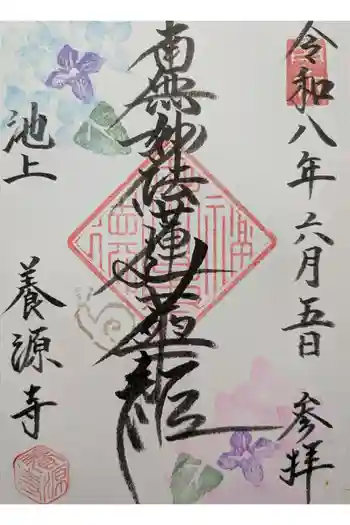 令和八年六月五日 参拝
南無妙法蓮華経
池上 養源寺